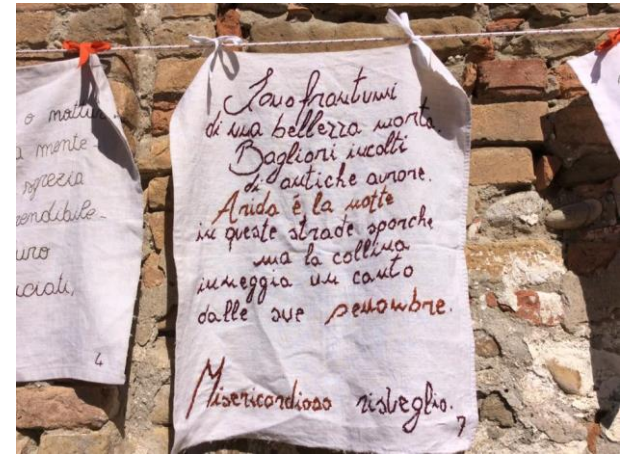 o
mente
4
Sono frantumi
di una bellezza morta.
Bagliori incolti
di antiche aurore.
Arida è la notte
in queste strade sporche
ma la collina
inneggia un canto
dalle sue penombre.
Misericordioso risveglio.
7